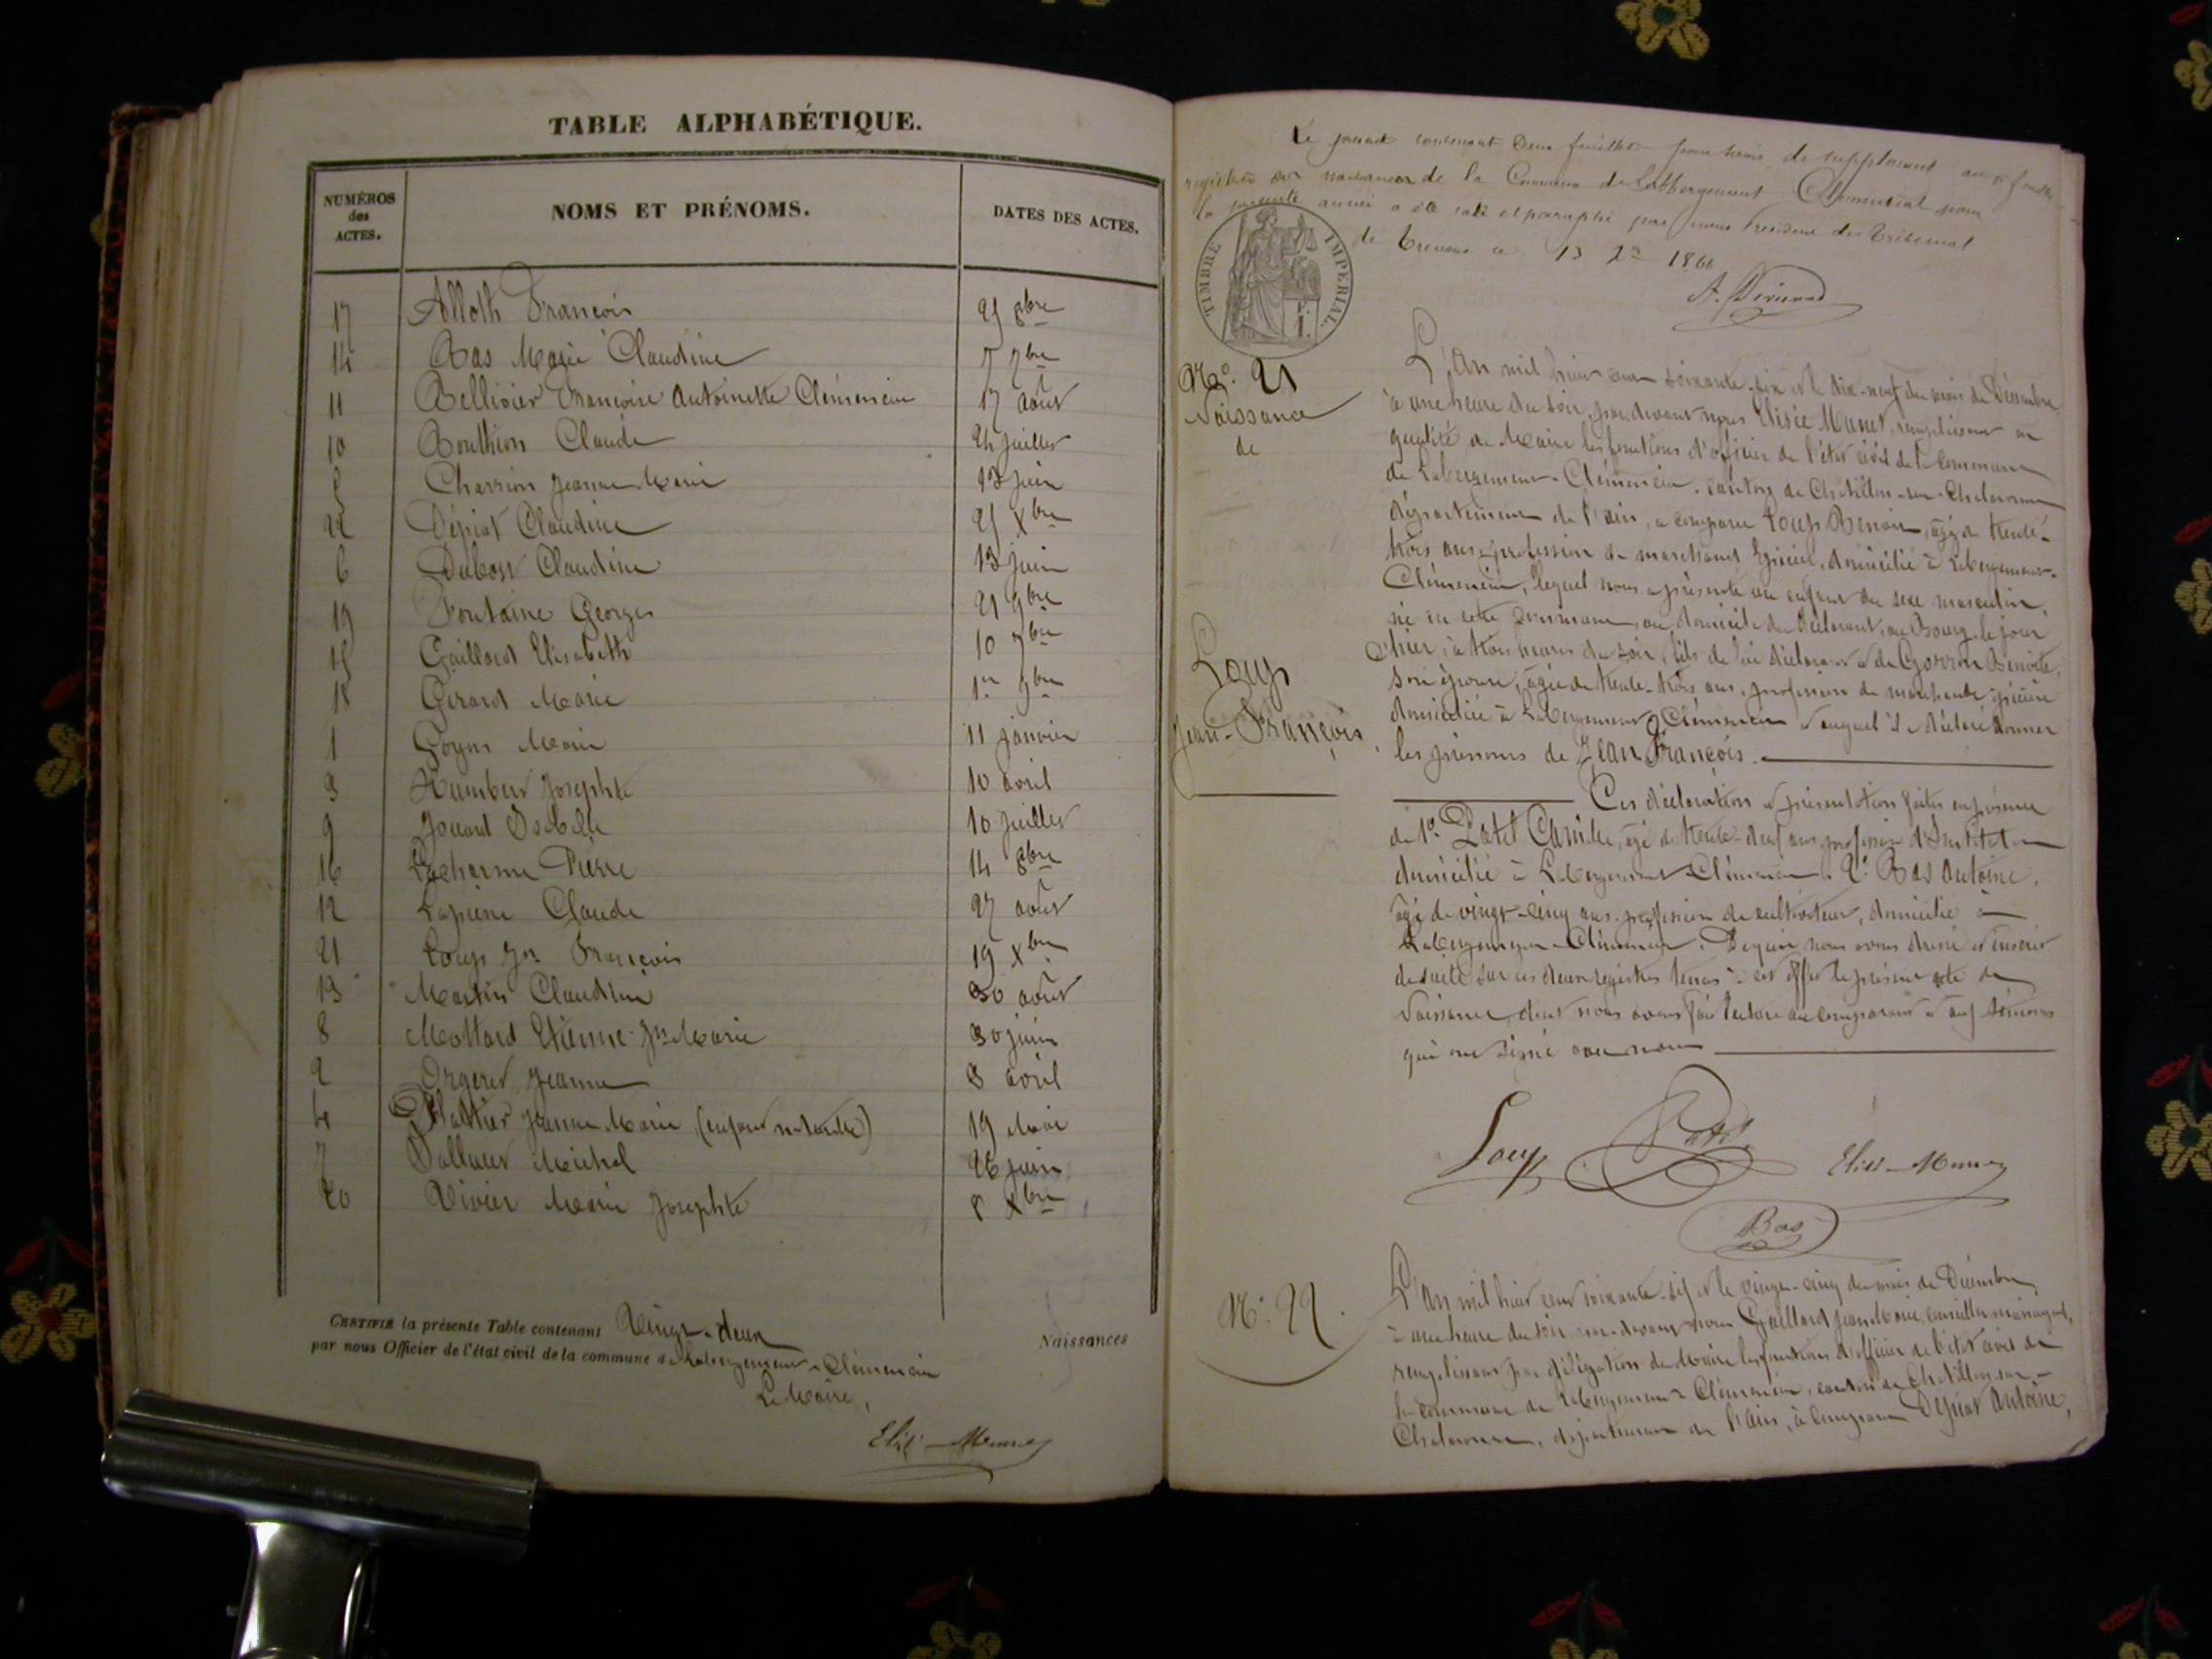 TABLE ALPHABÉTIQUE.
NUMÉROS des ACTES.
NOMS ET PRÉNOMS.
DATES DES ACTES.
17 François 8bre
14 Bas Marie Claudine 7 7bre
11 Françoise Antoinette 17 août
10 Claude 24 juillet
Jeanne Marie juin
22 Dépiat Claudine 25 Xbre
6 Claudine 13 juin
19 Fontaine Georges 21 9bre
15 Gaillard Elisabeth 10 7bre
18 Girard Marie 1er 9bre
1 Marie 11 janvier
3 Humbert Josephte 10 avril
9 16 juillet
16 Pierre 14 8bre
12 Claude 27 août
21 Loup Jn François 19 Xbre
13 Martin Claudine 30 août
8 Mottard Etienne Jn Marie 30 juin
2 Jeanne 8 avril
4 Jeanne Marie 19 Mai
7 Michel 26 juin
20 Vivier Marie Josephte 8 Xbre
CERTIFIÉ la présente Table contenant Vingt-deux Naissances
par nous Officier de l'état civil de la commune de
Le Maire,
Le présent contenant deux feuillets pour servir de supplément
registres des naissances de la Commune de
la présente année a été coté et paraphé par nous Président du Tribunal
de Trévoux ce 13 1866
TIMBRE IMPÉRIAL.
N°. 21
Naissance
de
Loup
Jean-François.
L'An mil huit cent soixante-six et le dix-neuf du mois de Décembre
à une heure du soir, par devant nous Elisée remplissant en
qualité de Maire les fonctions d'officier de l'état civil de la commune
de canton de Châtillon-sur-Chalaronne
département de l'ain, a comparu Loup Benoit, âgé de trente-
trois ans, profession de marchand Epicier, domicilié à
lequel nous a présenté un enfant du sexe masculin,
né en cette commune, au domicile du déclarant, au Bourg, le jour
d'hier, à trois heures du soir, fils de lui déclarant et de Benoite,
son épouse, âgée de trente-trois ans, profession de marchande épicière
domiciliée à et auquel il a déclaré donner
les prénoms de Jean François.
Ces déclaration et présentation faites en présence
de 1° Camille, âgé de trente-neuf ans, profession d'Instituteur
domicilié à 2° Bas Antoine,
âgé de vingt-cinq ans, profession de cultivateur, domicilié à
De quoi nous avons dressé et inscrit
de suite sur les deux registres tenus à cet effet le présent acte de
Naissance, dont nous avons fait lecture au comparant et aux témoins
qui ont signé avec nous
Loup
Bas
N°. 22.
L'An mil huit cent soixante-six et le vingt-cinq du mois de Décembre
à une heure du soir, par-devant nous Gaillard Jean Marie, conseiller municipal,
remplissant par délégation du Maire les fonctions d'officier de l'état civil de
la commune de canton de Châtillon-sur-
Chalaronne, département de l'ain, a comparu Dépiat Antoine,